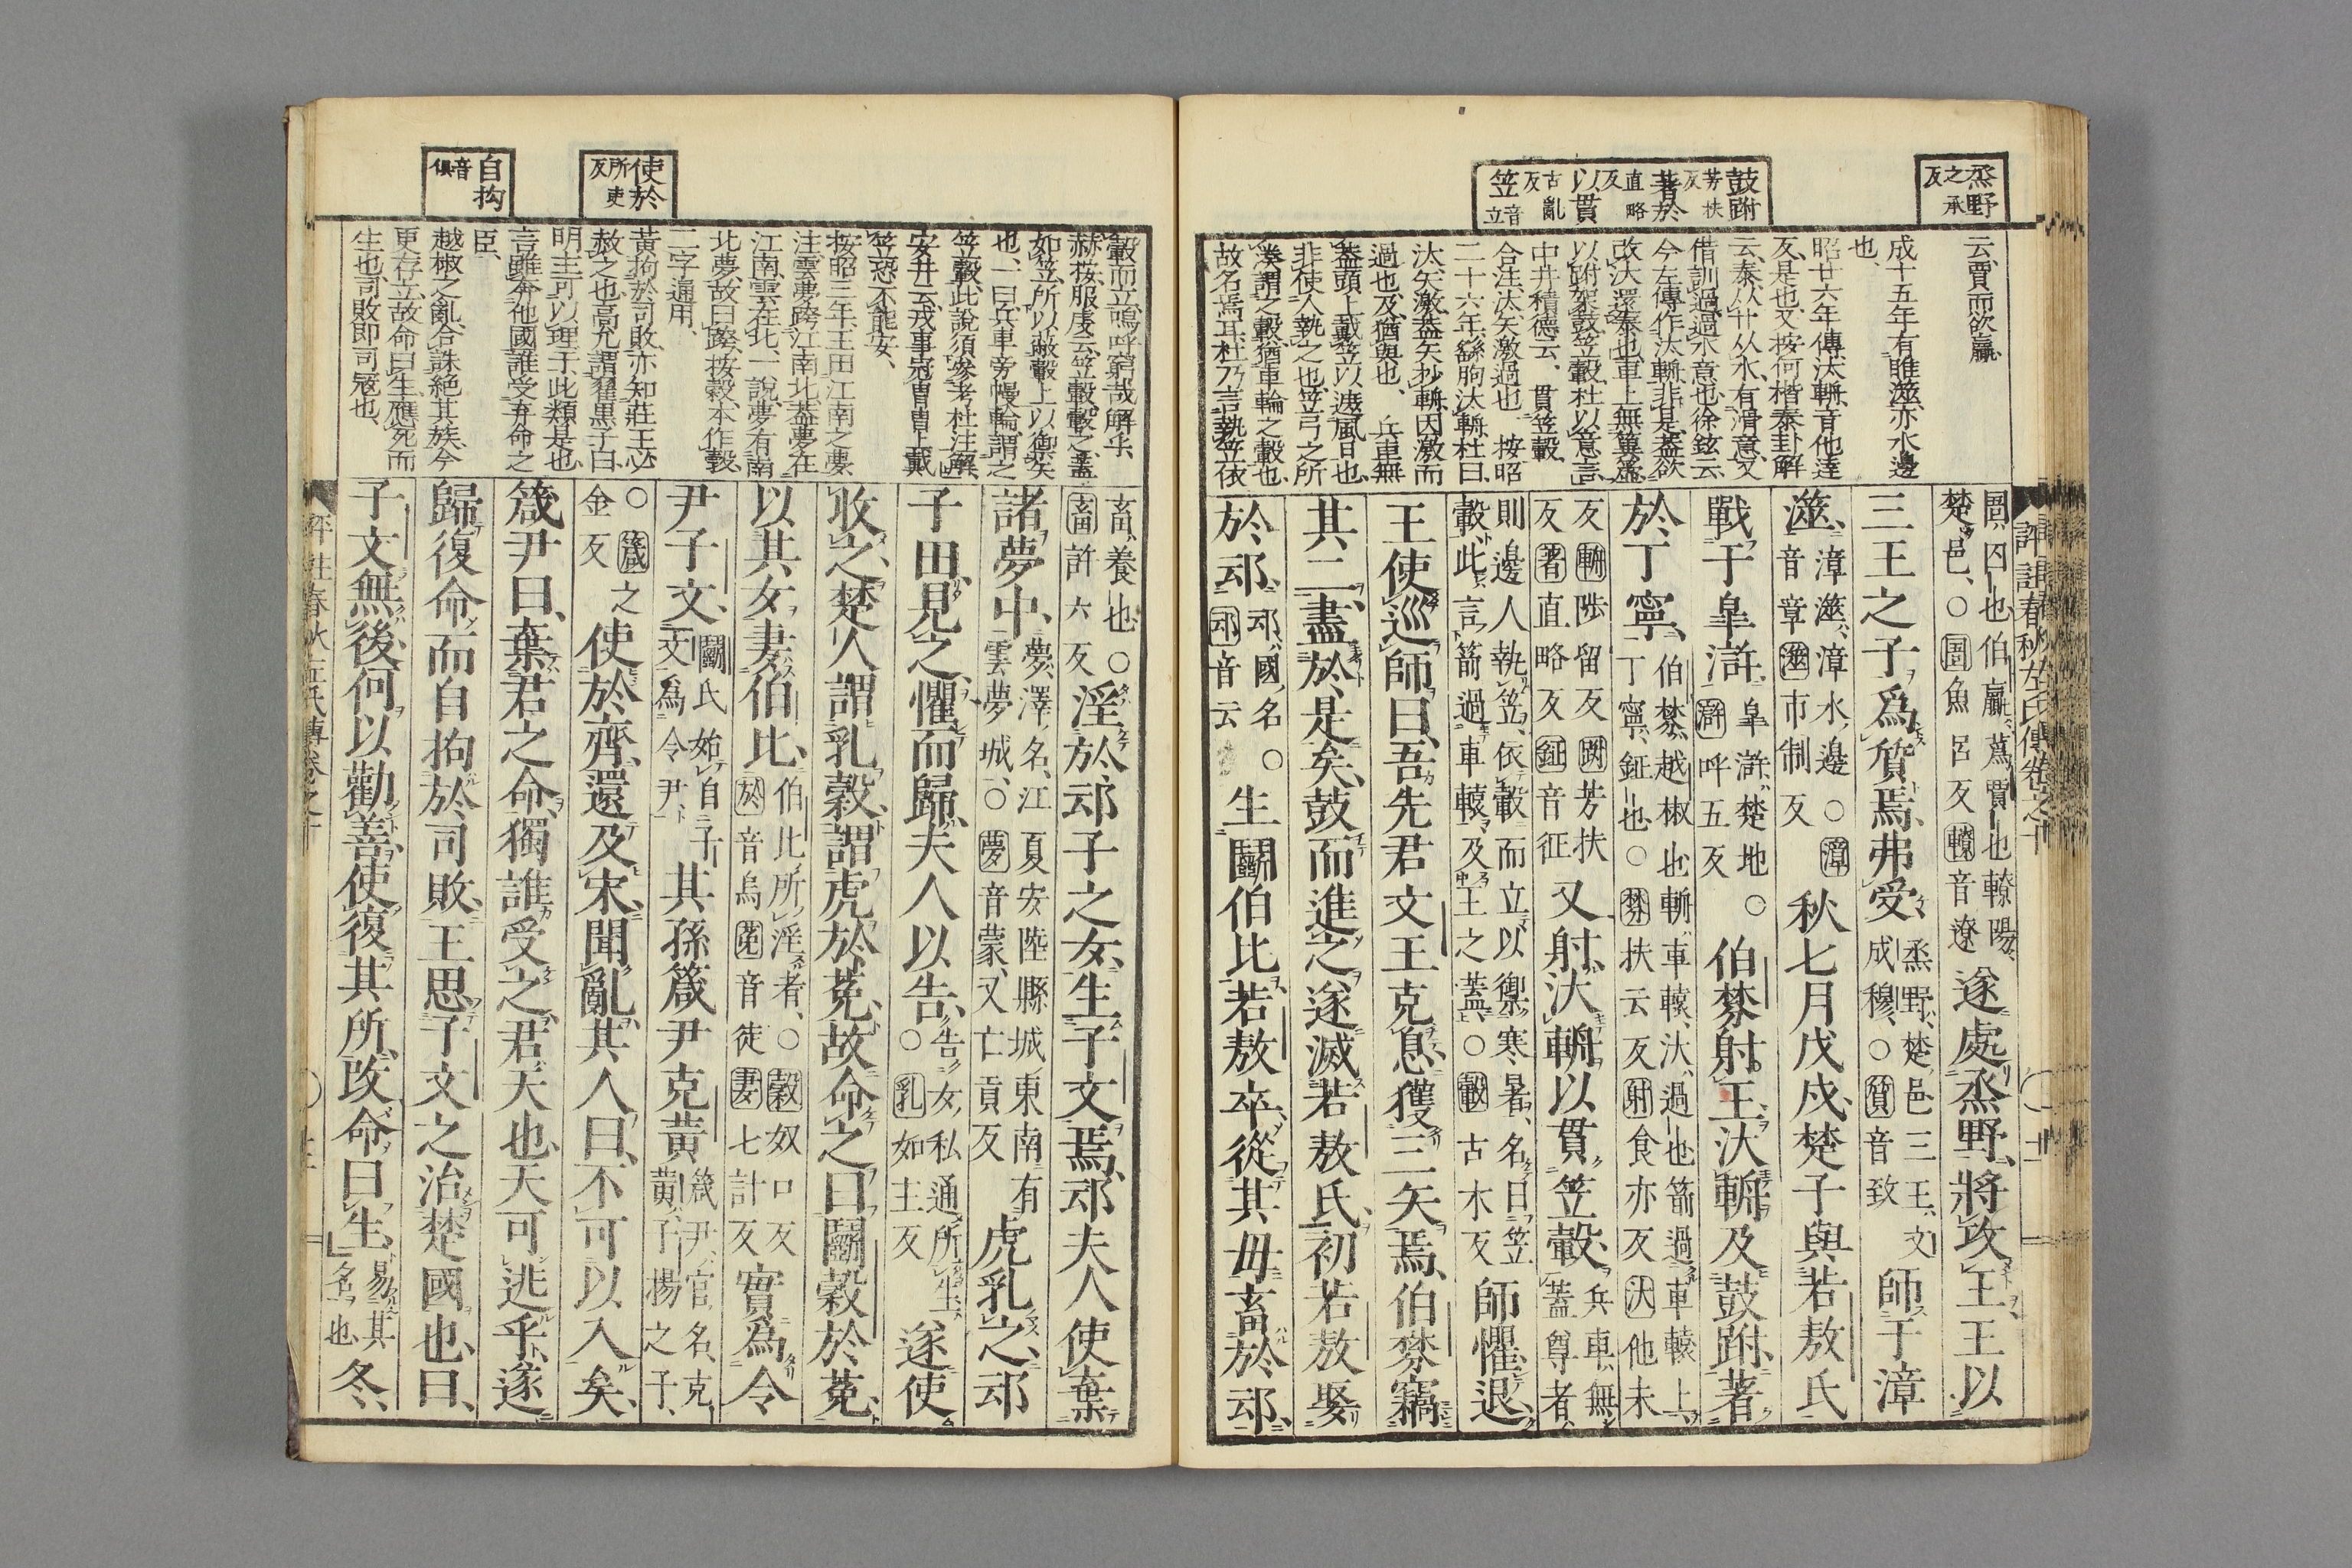 烝野之承反
鼓跗芳扶反
著於直略反
以貫古亂反
笠音立
云賈而欲贏
成十五年有睢澨亦水邊
也
昭廿六年傳汏輈音他達
反是也又按何楷泰卦解
云泰从廾从水有滑意又
借訓過過水意也徐鉉云
今左傳作汏輈非是蓋欲
改汏還泰也車上無簨虡
以跗架鼓笠轂杜以意言
中井積德云貫笠轂
合注汏矢激過也按昭
二十六年繇胊汏輈杜曰
汏矢激蓋矢抄輈因激而
過也及猶與也兵車無
蓋頭上戴笠以遮風日也
非使人執之也笠弓之所
湊謂之轂猶車輪之轂也
故名焉耳杜乃言執笠依
圄囚也伯嬴蒍賈也轑陽
楚邑○圄魚呂反轑音遼
遂處烝野將攻王王以
三王之子爲質焉弗受
烝野楚邑三王文
成穆○質音致
師于漳
澨漳澨漳水邊○漳
音章澨市制反
秋七月戊戌楚子與若敖氏
戰于皐滸皐滸楚地○
滸呼五反
伯棼射王汏輈及鼓跗著
於丁寧伯棼越椒也輈車轅汏過也箭過車轅上
丁寧鉦也○棼扶云反射食亦反汏他末
反輈陟留反跗芳扶
反著直略反鉦音征
又射汏輈以貫笠轂
兵車無
蓋尊者
則邊人執笠依轂而立以禦寒暑名曰笠
轂此言箭過車轅及王之蓋○轂古木反
師懼退
王使巡師曰吾先君文王克息獲三矢焉伯棼竊
其二盡於是矣鼓而進之遂滅若敖氏初若敖娶
於䢵䢵國名○
䢵音云
生鬬伯比若敖卒從其母畜於䢵
使於所吏反
自拘音俱
轂而立嗚呼窮哉解乎
赫按服虔云笠轂轂之蓋
如笠所以蔽轂上以禦矢
也一曰兵車旁幔輪謂之
笠轂此說須參考杜注解
安井云戎事冠冑冑上戴
笠恐不能安
按昭三年王田江南之夢
注雲夢跨江南北蓋夢在
江南雲在北一說夢有南
北夢故曰跨按穀本作㝅
二字通用
黃拘於司敗亦知莊王必
赦之也高允謂翟黑子曰
明主可以理干此類是也
言雖奔他國誰受弃命之
臣
越椒之亂合誅絕其族今
更存立故命曰生應死而
生也司敗即司寇也
畜養也○
畜許六反
淫於䢵子之女生子文焉䢵夫人使棄
諸夢中夢澤名江夏安陸縣城東南有
雲夢城○夢音蒙又亡貢反
虎乳之䢵
子田見之懼而歸夫人以告
告女私通所生
○乳如主反
遂使
收之楚人謂乳穀謂虎於菟故命之曰鬬穀於菟
以其女妻伯比伯比所淫者○穀奴口反
於音烏菟音徒妻七計反
實爲令
尹子文鬬氏始自子
文爲令尹
其孫箴尹克黃
箴尹官名克
黃子揚之子
○箴之
金反
使於齊還及宋聞亂其人曰不可以入矣
箴尹曰棄君之命獨誰受之君天也天可逃乎遂
歸復命而自拘於司敗王思子文之治楚國也曰
子文無後何以勸善使復其所改命曰生
易其
名也
冬